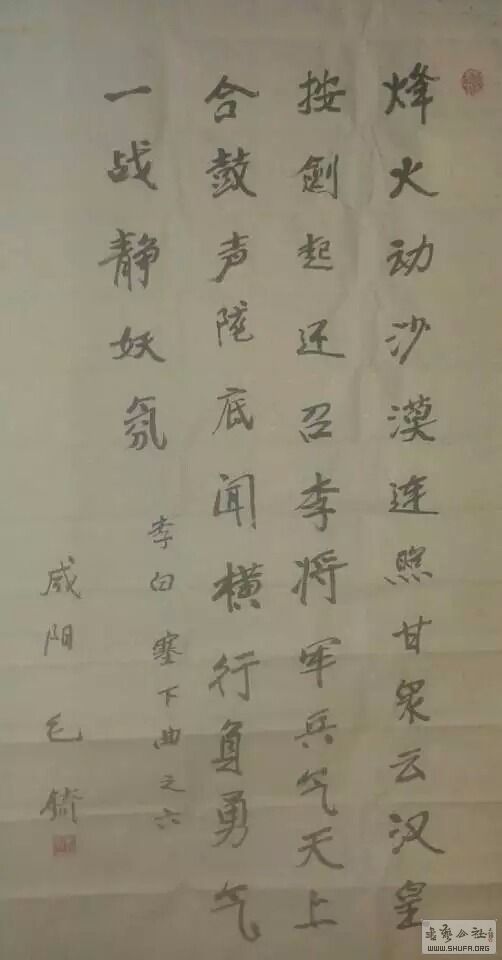 烽火动沙漠连照甘泉云汉皇
按剑起还召李将军兵气天上
合鼓声陇底闻横行负勇气
一战静妖氛
李白塞下曲之六
咸阳毛锜
书艺公社
WWW.SHUFA.ORG